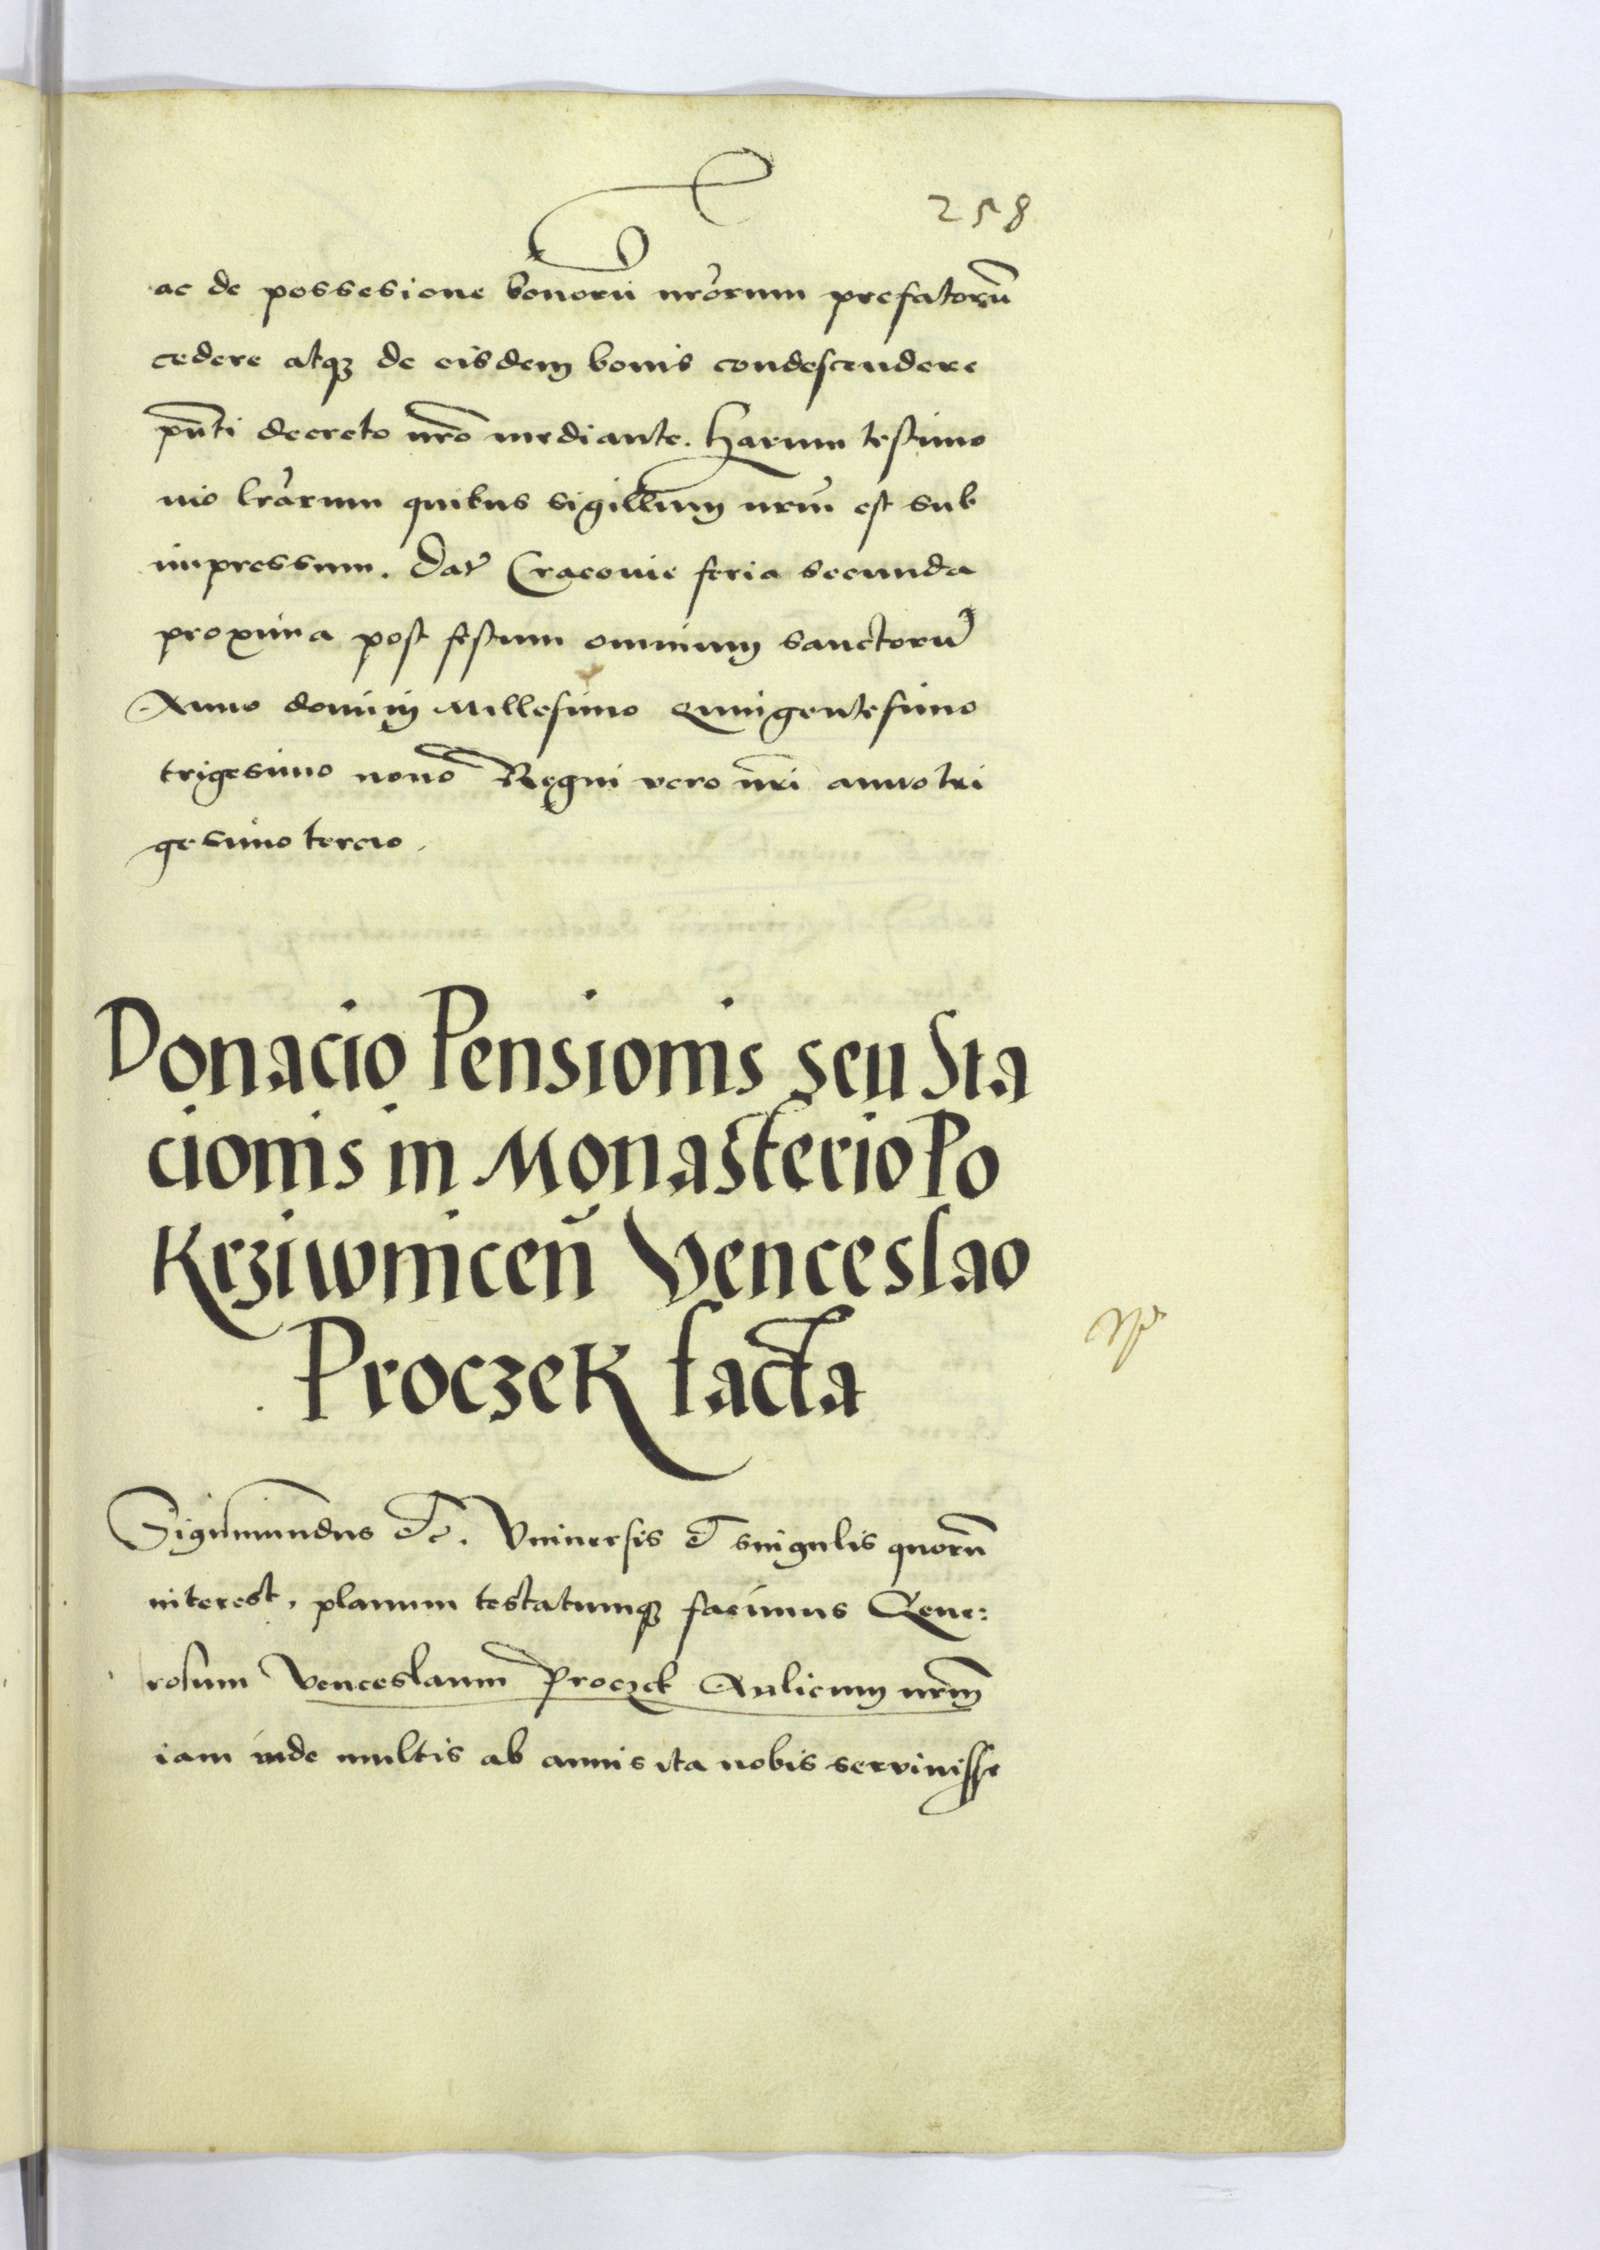 258
ac de possesione bonorū nr̄orum prefatorū
cedere atqꝫ de eisdem bonis condescendere
pn̄ti decreto nr̄o mediante. Harum testimo
nio lr̄arum quibus sigillum nrm̄ est sub
impressum. Dat̄ Cracouie feria secunda
proxima post festum omnium sanctorū
Anno domini Millesimo Quingentesimo
trigesimo nono Regni vero nr̄i anno tri
gesimo tercio.
Donacio Pensionis seu Sta
cionis in Monasterio Po
Krziwnicen̄ Venceslao
Proczek facta
Sigismundus etc. Vniuersis et singulis quorū
interest, planum testatumqꝫ facimus Gene:
rosum Venceslaum Proczek Aulicum nrm̄
iam inde multis ab annis ita nobis seruiuisse